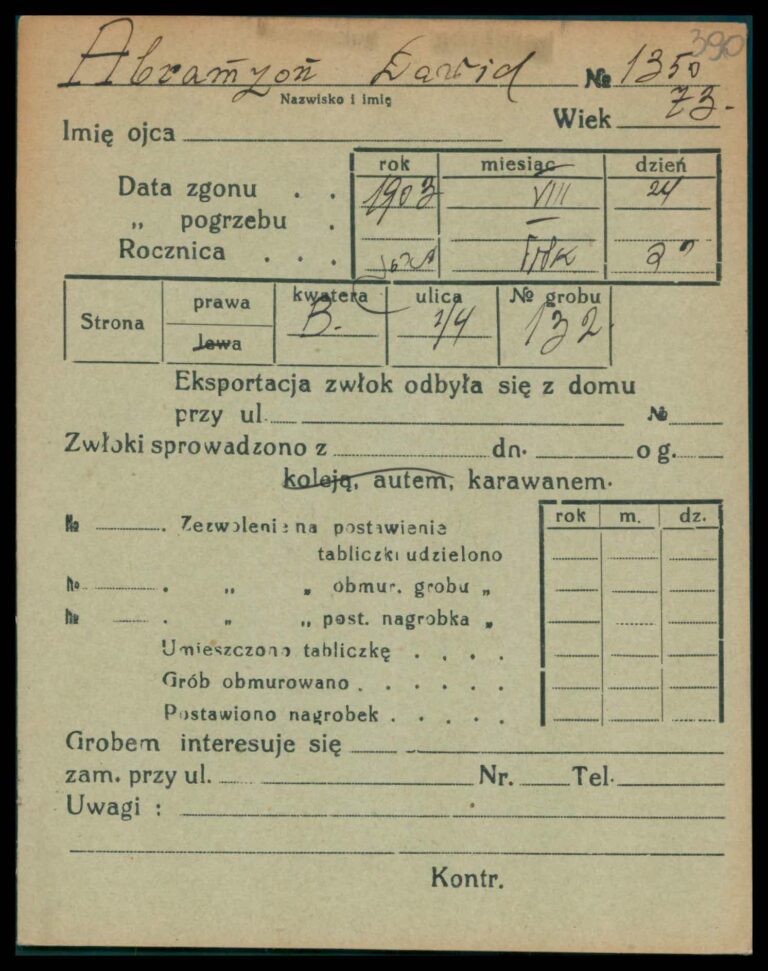 390
Abramzon Dawid № 1350
Nazwisko i imię
Wiek 73.
Imię ojca
rok miesiąc dzień
Data zgonu . . 1903 VIII 24
„ pogrzebu .
Rocznica . . .
Strona prawa kwatera ulica № grobu
lewa B. 1/4 132
Eksportacja zwłok odbyła się z domu
przy ul. №
Zwłoki sprowadzono z dn. o g.
koleją, autem, karawanem.
rok m. dz.
№ . Zezwolenie na postawienie
tabliczki udzielono
№ . „ „ obmur. grobu „
№ . „ „ post. nagrobka „
Umieszczono tabliczkę . . . .
Grób obmurowano . . . . . .
Postawiono nagrobek . . . . .
Grobem interesuje się
zam. przy ul. Nr. Tel.
Uwagi :
Kontr.